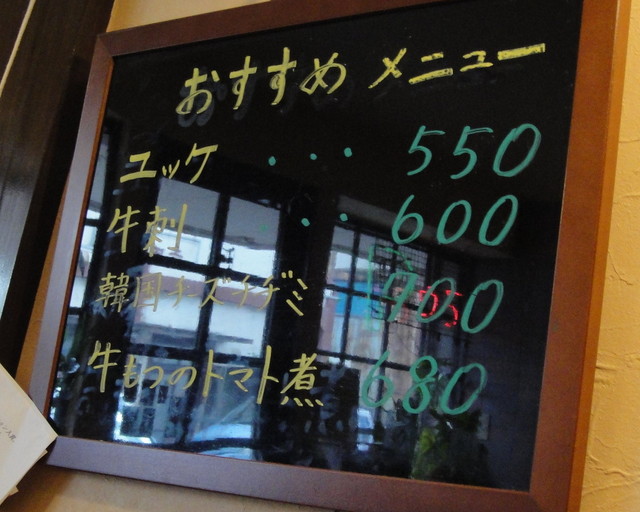 おすすめメニュー
ユッケ ・・・ 550
牛刺 ・・・ 600
韓国チーズチヂミ 900
牛もつのトマト煮 680